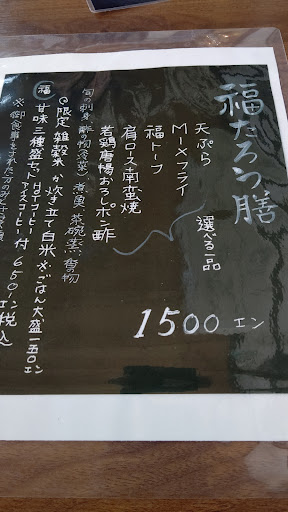 福たろう膳
天ぷら
MIXフライ
福トーフ
肩ロース南蛮焼
若鶏唐揚おろしポン酢
選べる一品
1500エン
旬の刺身 酢の物(冷菜) 煮風 茶碗蒸 貨物
◎限定雑穀米か炊き立て白米 ※ごはん大盛一五〇エン
福 甘味三種盛セット HOTコーヒー アイスコーヒー 付 650エン 税込
※御食事をされた方のみ